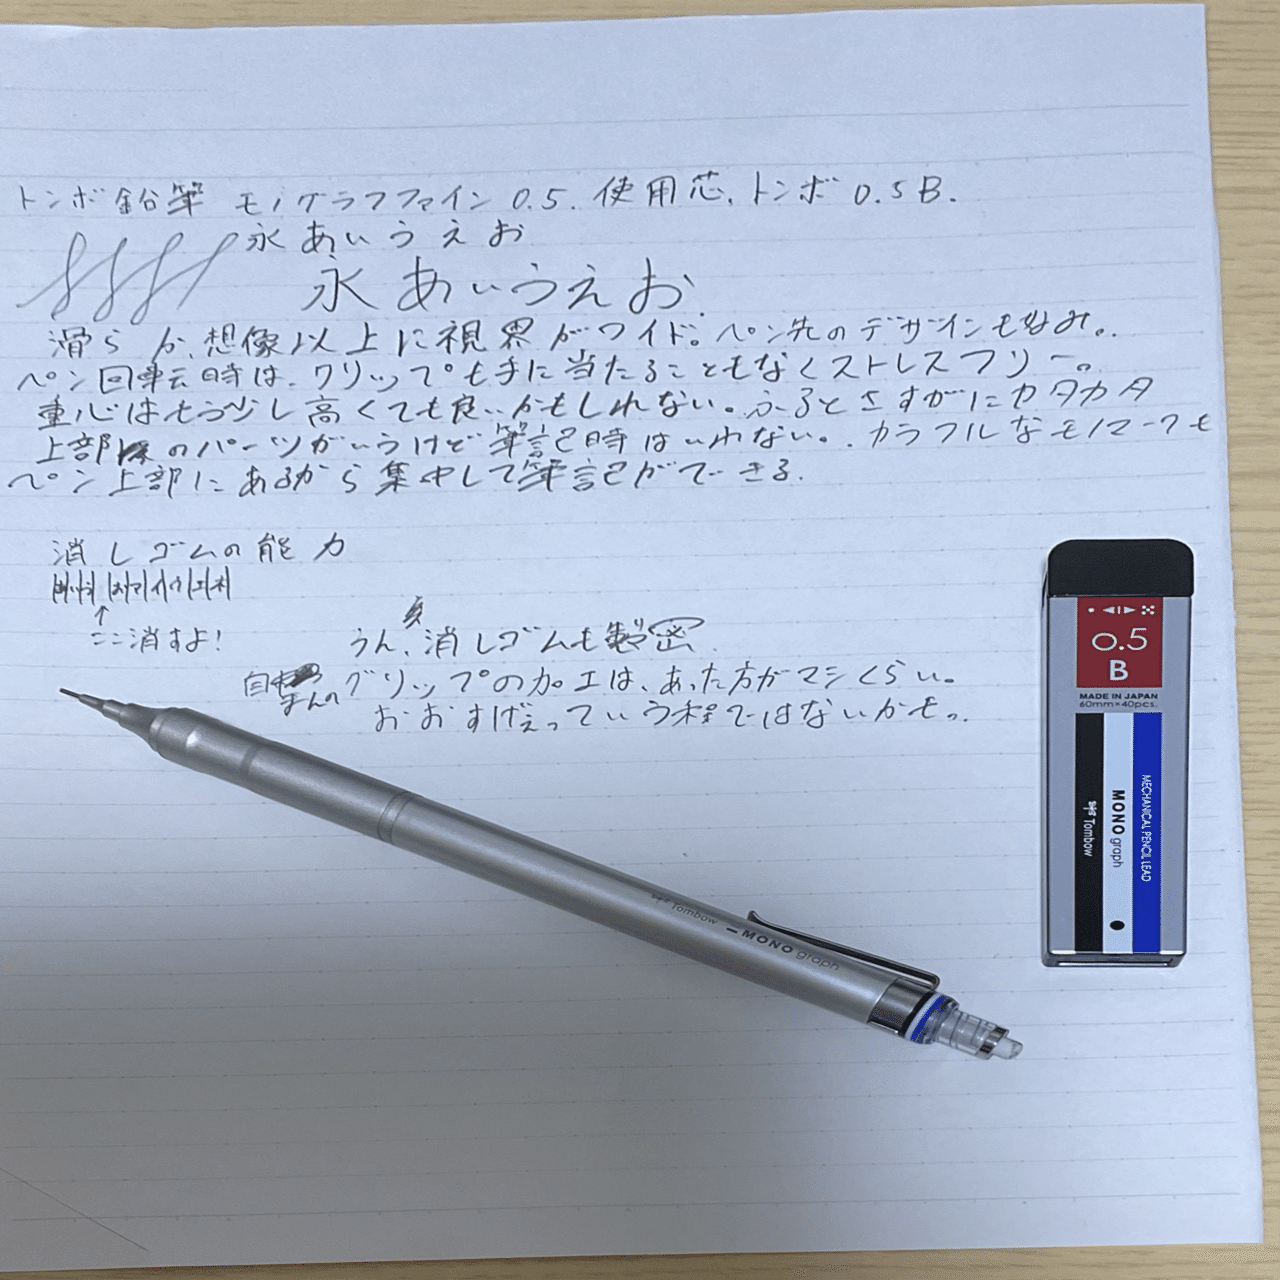 トンボ鉛筆 モノグラフファイン 0.5. 使用芯、トンボ 0.5B.
永 あいうえお
永 あいうえお.
滑らか、想像以上に視界がワイド。ペン先のデザインも好み。
ペン回転時は、クリップも手に当たることもなくストレスフリー。
重心はもう少し高くても良いかもしれない。ふるとさすがにカタカタ
上部のパーツがいうけど筆記時はいわない。カラフルなモノマークも
ペン上部にあるから集中して筆記ができる.
消しゴムの能力
↑
ここ消すよ!
うん、消しゴムも密.
自まんのグリップの加工は、あった方がマシくらい。
おおすげぇっていう程ではないかもっ.
0.5
B
MADE IN JAPAN
60mm×40pcs.
MECHANICAL PENCIL LEAD
MONO graph
Tombow
Tombow
MONO graph